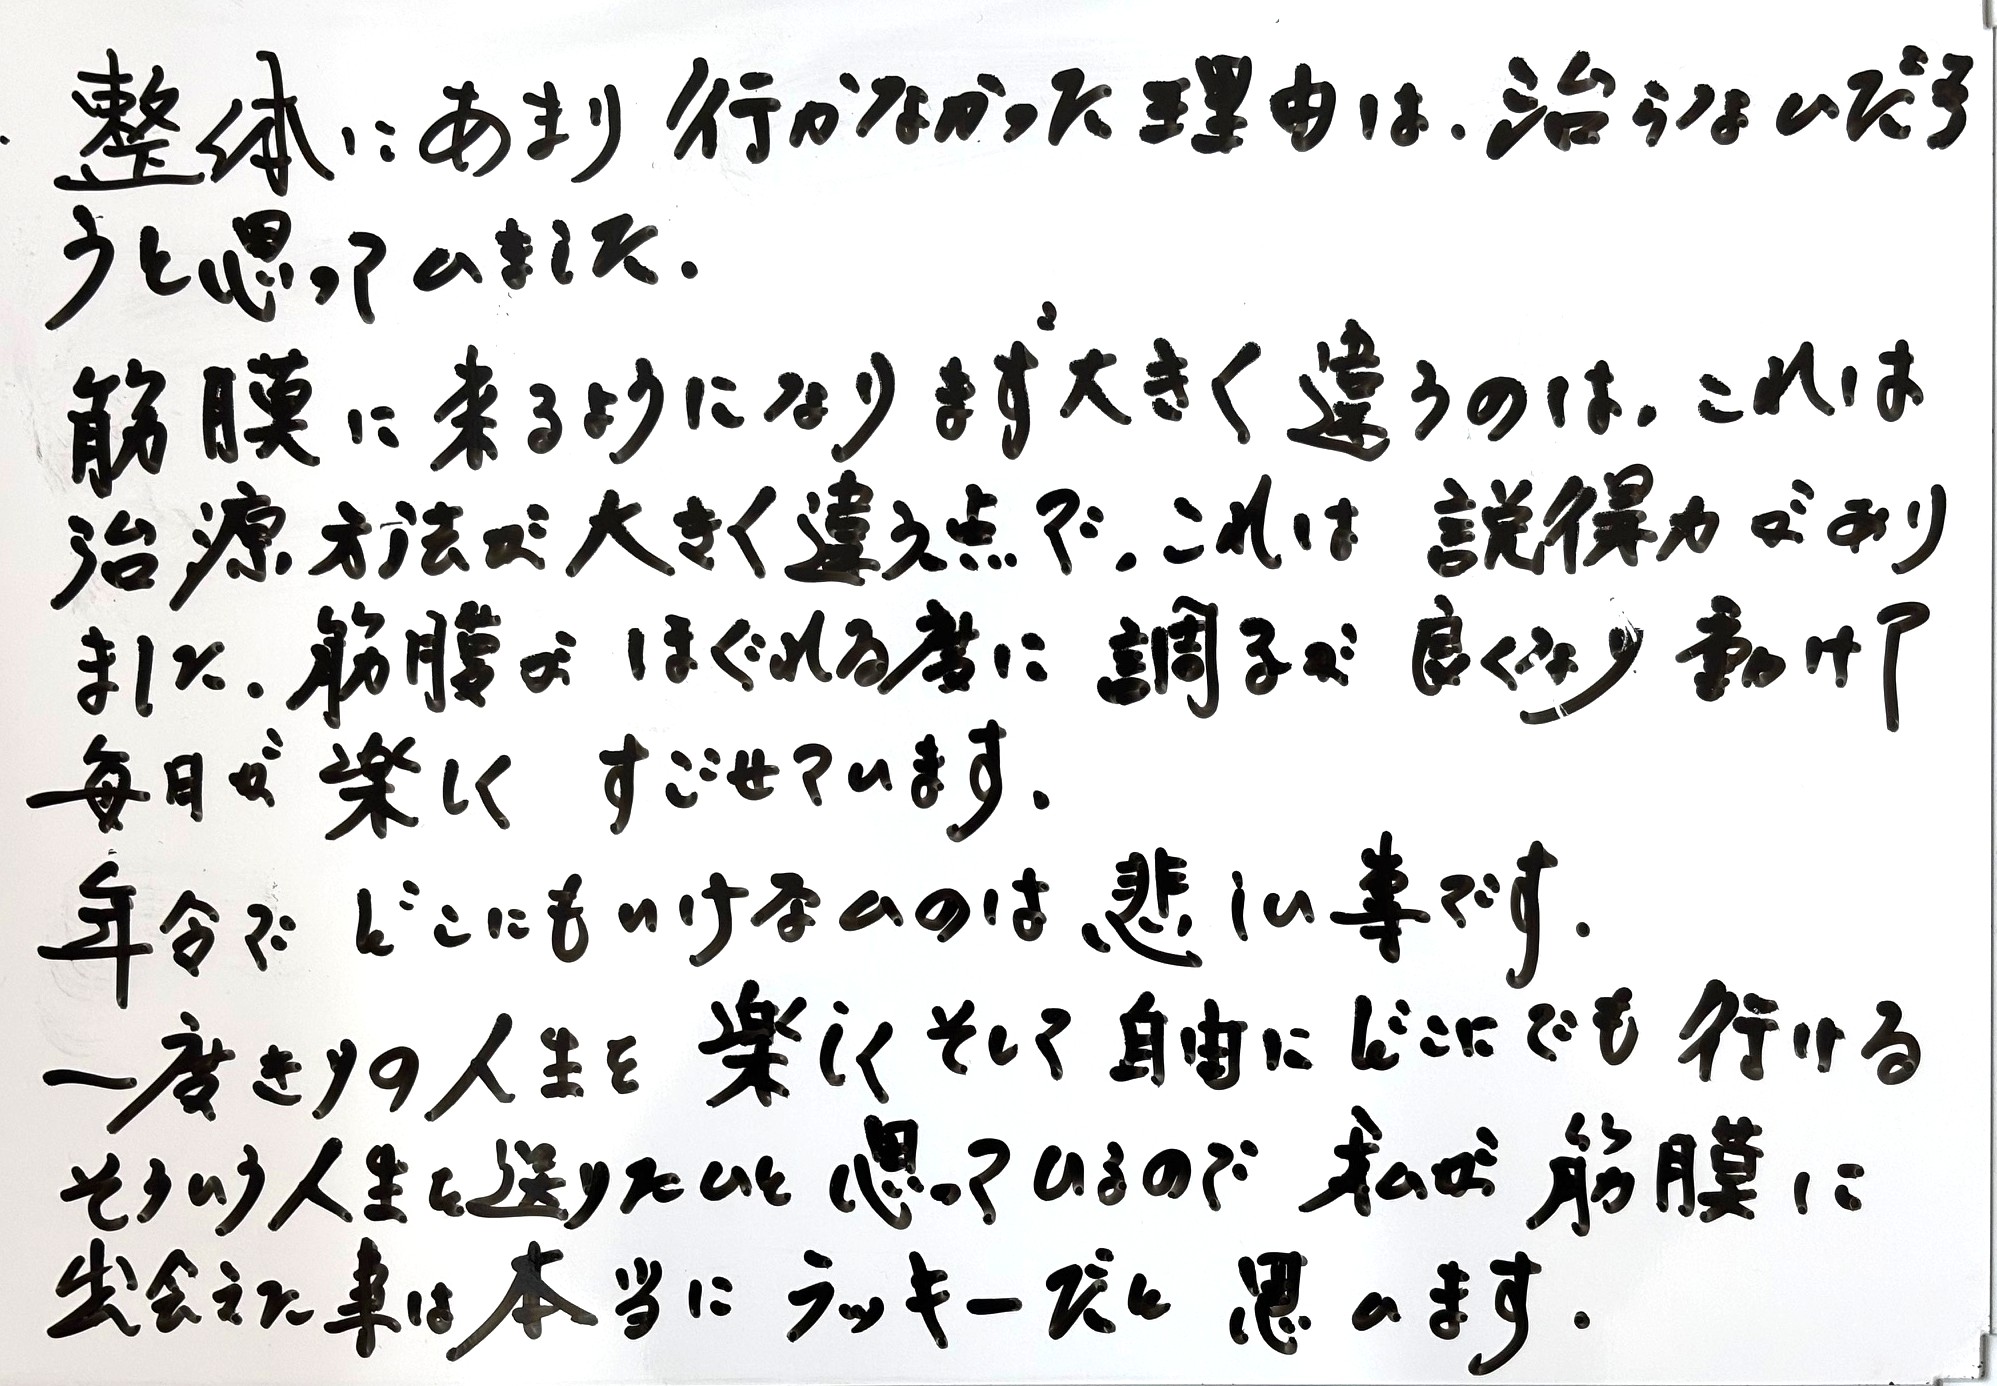 整体にあまり行かなかった理由は、治らないだろ
うと思っていました。
筋膜に来るようになりまず大きく違うのは、これは
治療方法が大きく違う点で、これは説得力があり
ました。筋膜がほぐれる度に調子が良くなり動けて
毎日が楽しくすごせています。
年令でどこにもいけないのは悲しい事です。
一度きりの人生を楽しくそして自由にどこにでも行ける
そういう人生を送りたいと思っているので私が筋膜に
出会えた事は本当にラッキーだと思います。